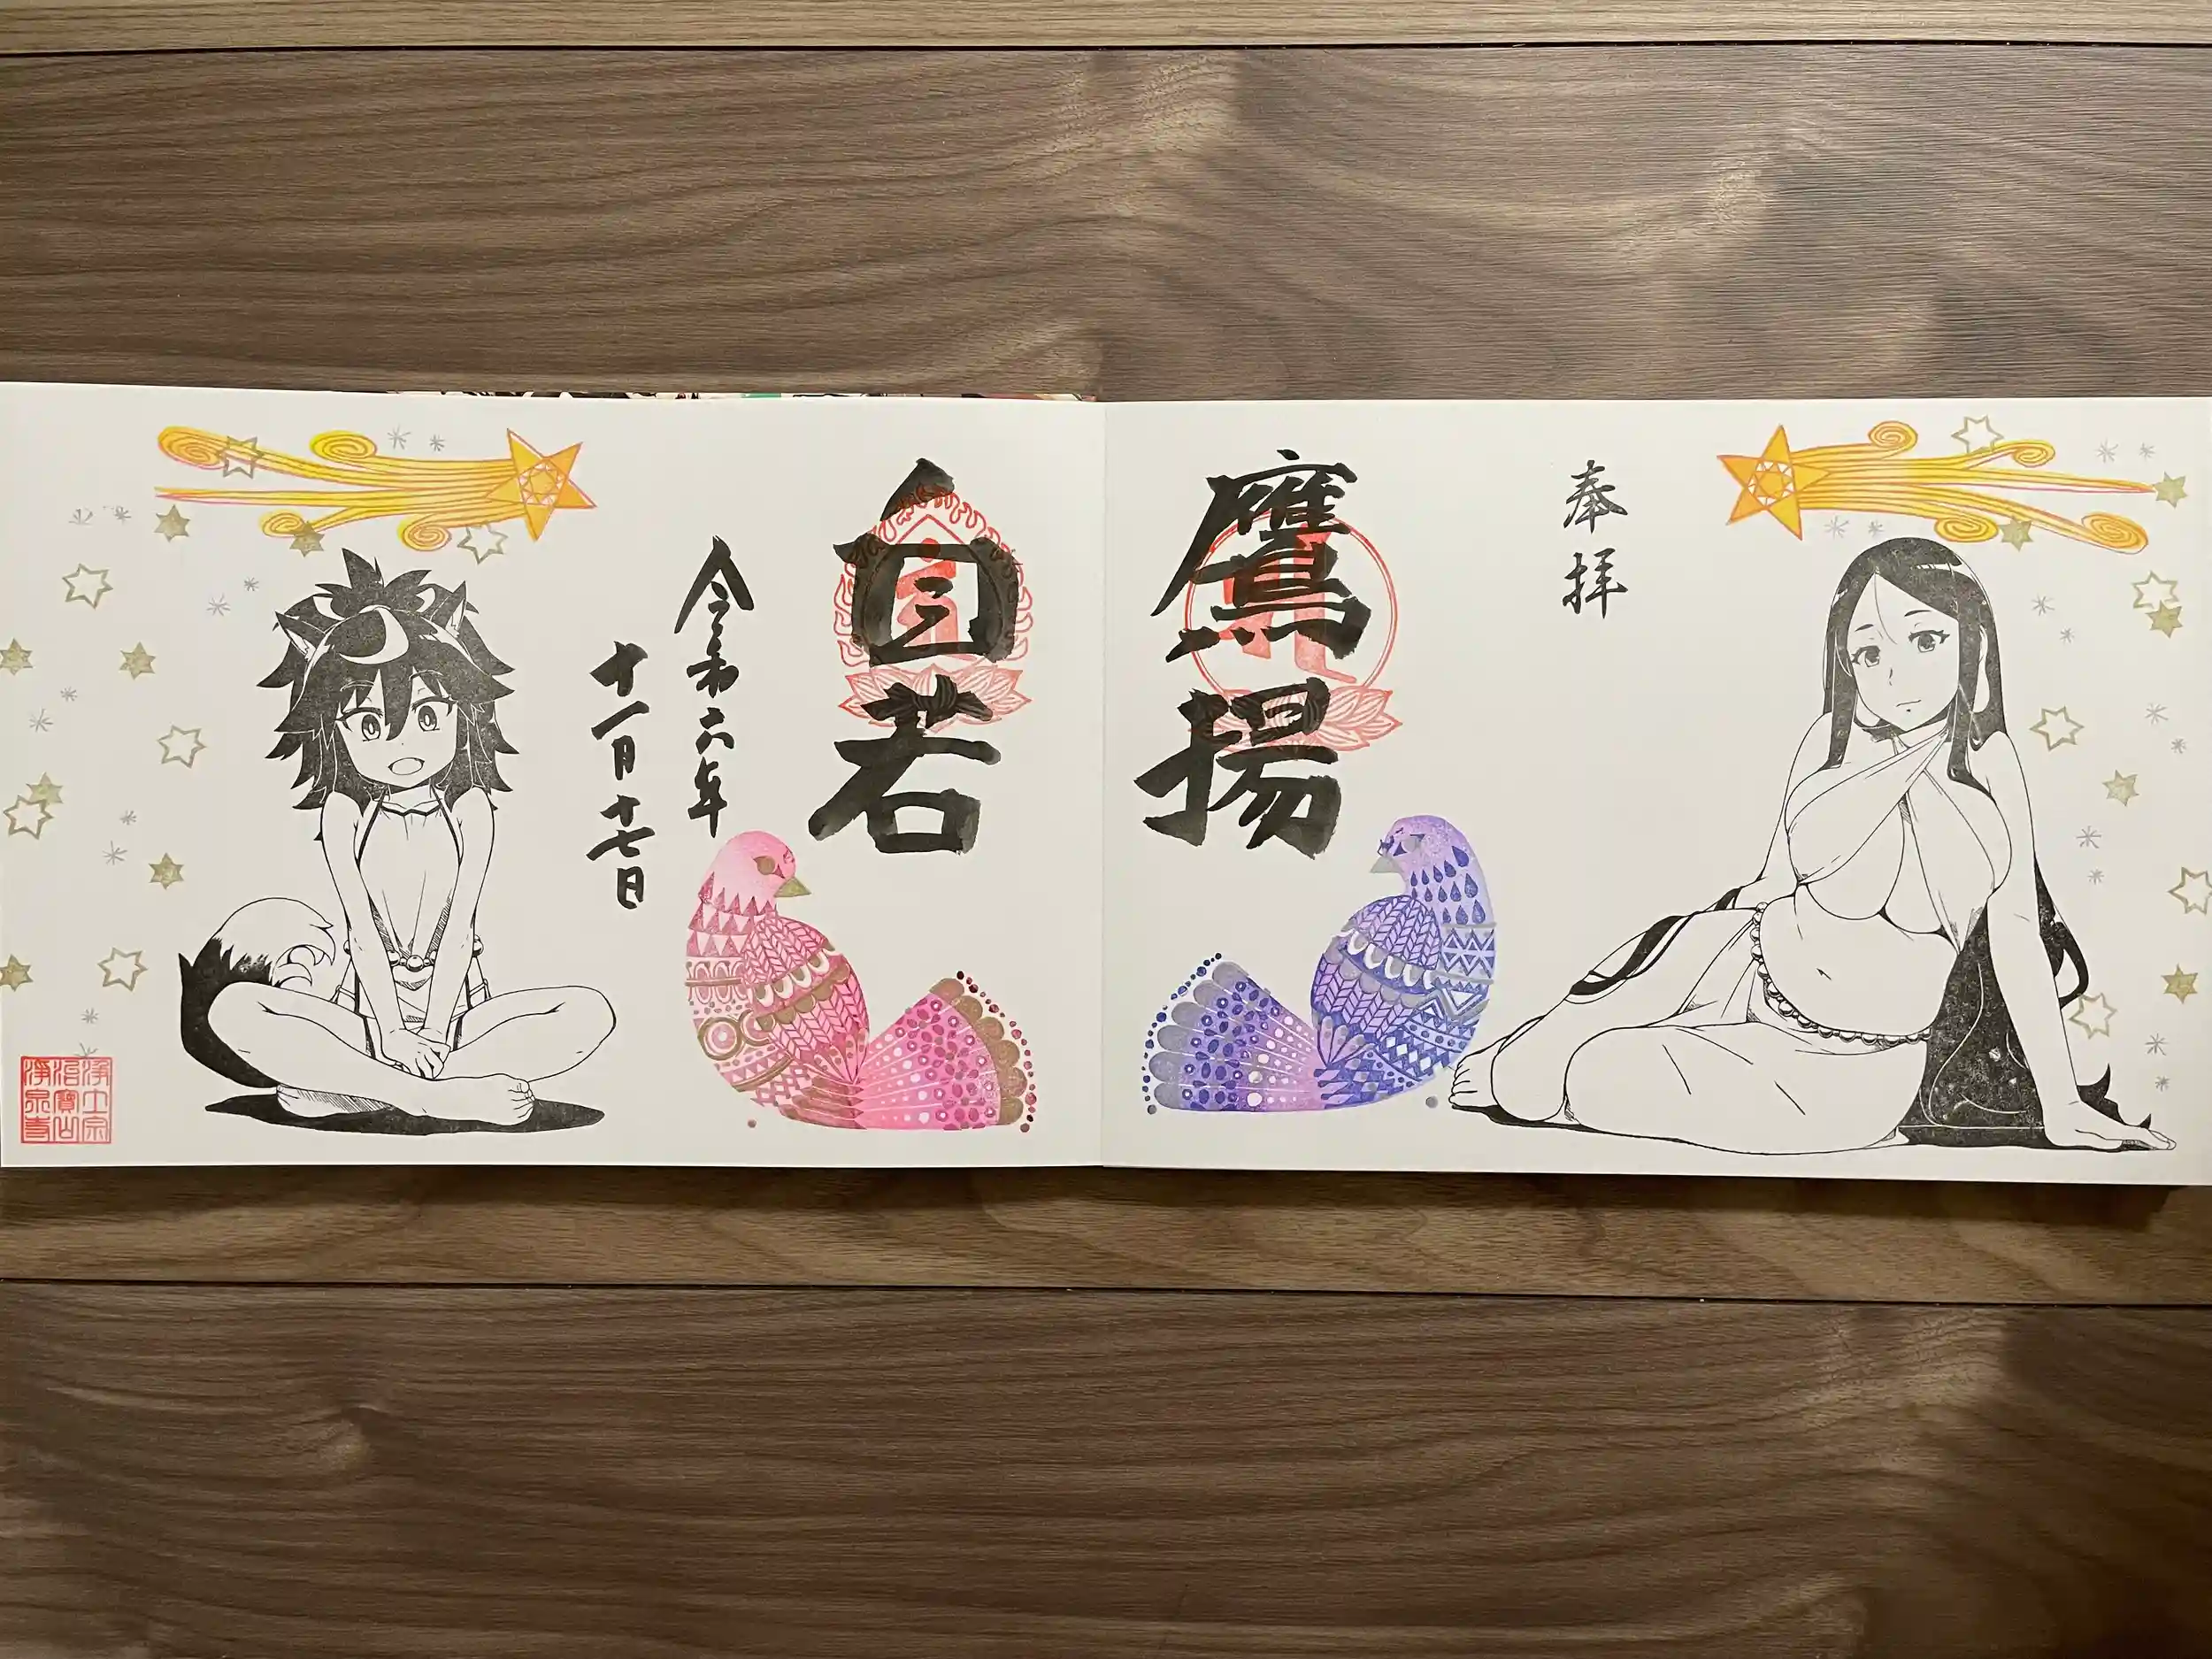 奉拝
鷹揚
自若
令和六年
十一月十七日
浄土宗
治寶山
淨泉寺